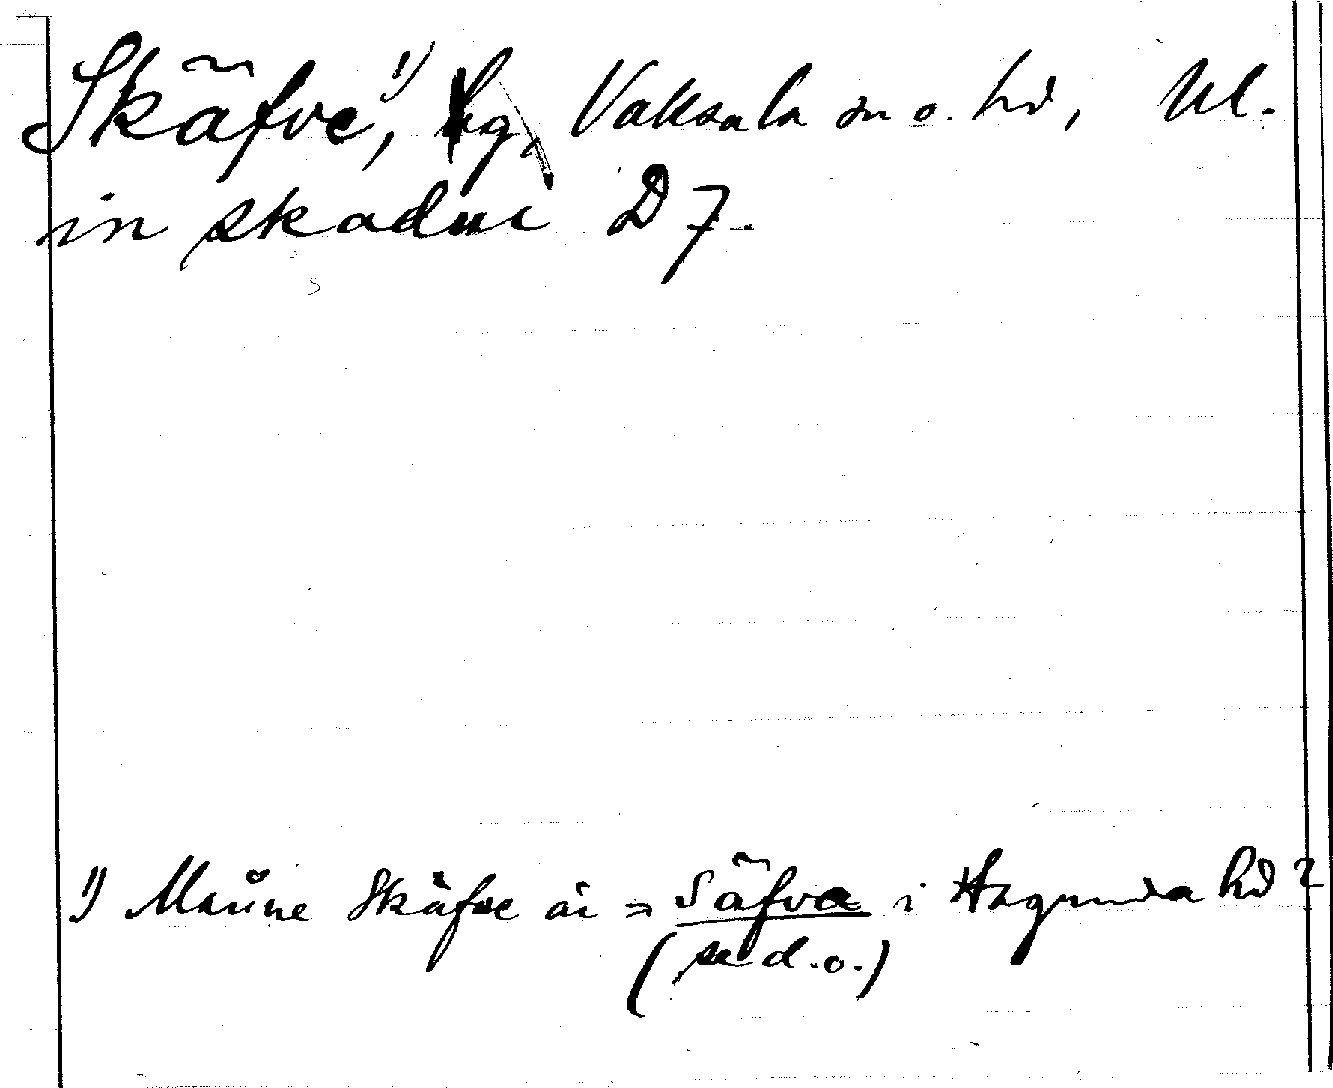 Skäfve,¹⁾ by, Vaksala sn o. hd, Ul.
in skadwi D 7.
1) Månne Skäfve är = Säfva i Hagunda hd?
(se d.o.)